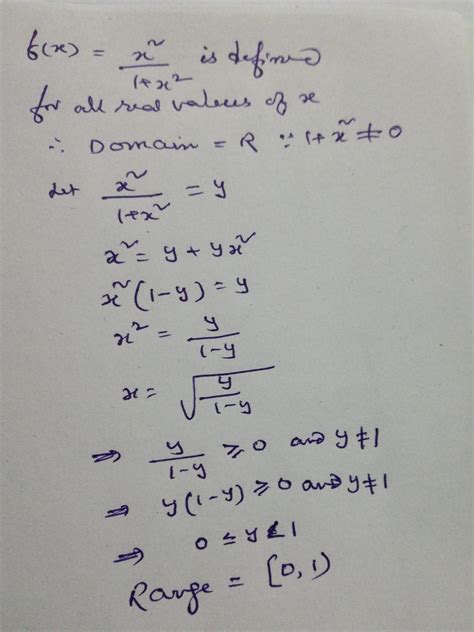 f(x) = x²/(1+x²) is defined
for all real values of x
∴ Domain = R ∵ 1+x² ≠ 0
Let x²/(1+x²) = y
x² = y + yx²
x²(1-y) = y
x² = y/(1-y)
x = √(y/(1-y))
⇒ y/(1-y) ≥ 0 and y≠1
⇒ y(1-y) ≥ 0 and y≠1
⇒ 0 ≤ y < 1
Range = [0,1)